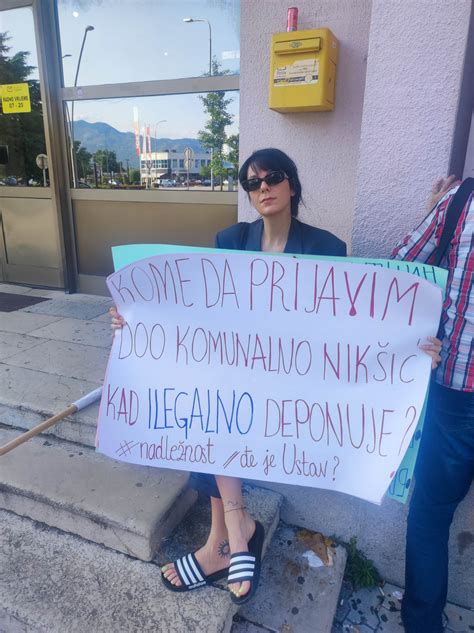 RADNO VRIJEME
07 - 20
KOME DA PRIJAVIM
DOO KOMUNALNO NIKŠIĆ
KAD ILEGALNO DEPONUJE?
#nadležnost //đe je Ustav?